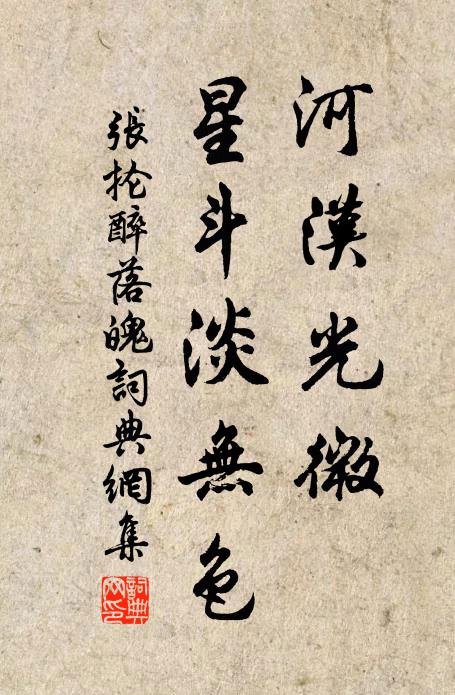 河漢光微
星斗淡無色
張掄醉落魄詞典網集
詞典網印